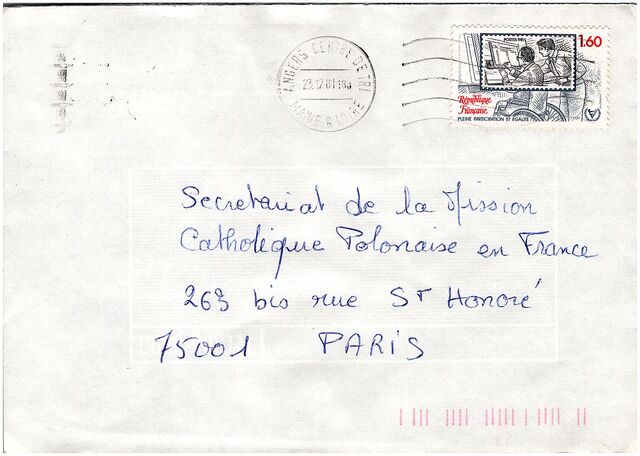 ANGERS CENTRE DE TRI
MAINE & LOIRE
POSTES 1981
1.60
République
Française
PLEINE PARTICIPATION ET EGALITE
Secretariat de la Mission
Catholique Polonaise en France
263 bis rue St Honoré
75001 PARIS